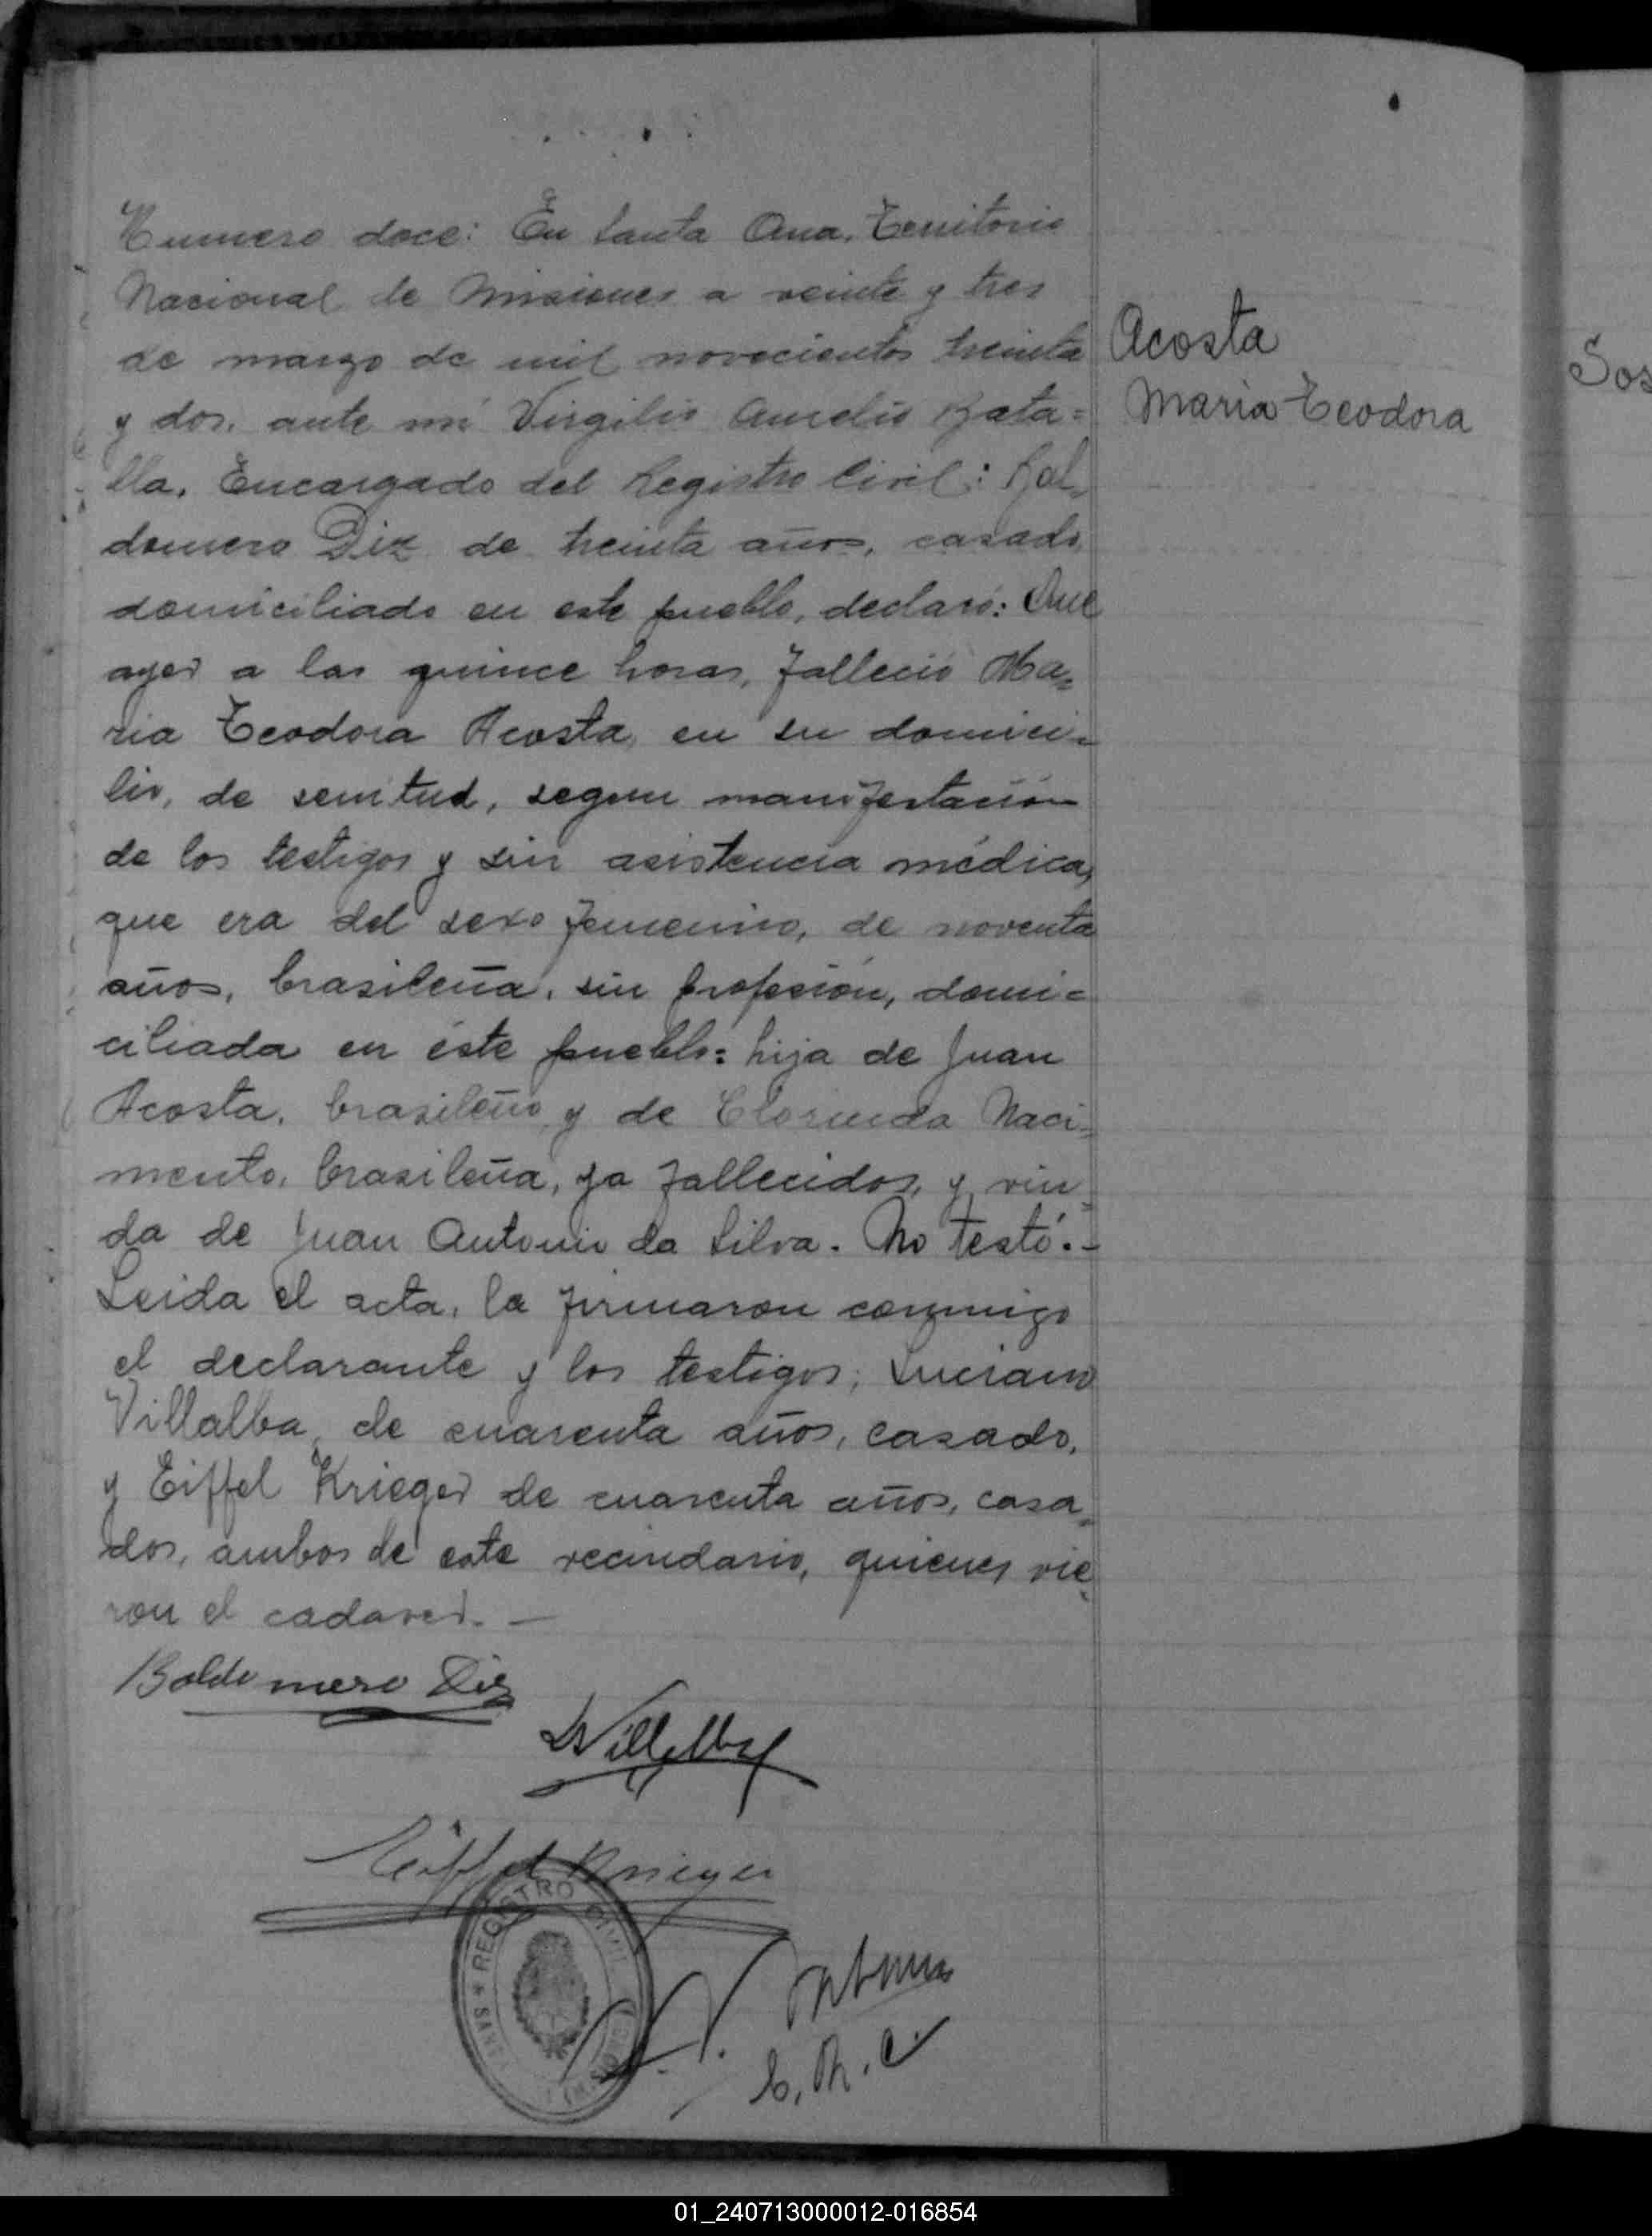 Numero doce: En Santa Ana, Territorio
Nacional de Misiones a veinte y tres
de marzo de mil novecientos treinta
y dos, ante mi Virgilio Aurelio Bata=
lla, Encargado del Registro Civil: Bal=
domero Diz de treinta años, casado,
domiciliado en este pueblo, declaró: Que
ayer a las quince horas, falleció Ma=
ria Teodora Acosta, en su domici=
lio, de senitud, segun manifestación
de los testigos y sin asistencia médica,
que era del sexo femenino, de noventa
años, brasileña, sin profesión, domi=
ciliada en éste pueblo= hija de Juan
Acosta, brasileño y de Clorinda Naci=
mento, brasileña, ya fallecidos, y viu=
da de Juan Antonio da Silva. No testó.-
Leida el acta, la firmaron conmigo
el declarante y los testigos; Luciano
Villalba, de cuarenta años, casado,
y Eiffel Krieger de cuarenta años, casa=
dos, ambos de este vecindario, quienes vie=
ron el cadaver. —
Acosta
Maria Teodora
Sos
Baldomero Diz
LVillalba
Eiffel Krieger
REGISTRO CIVIL
E. R. C.
01_240713000012-016854